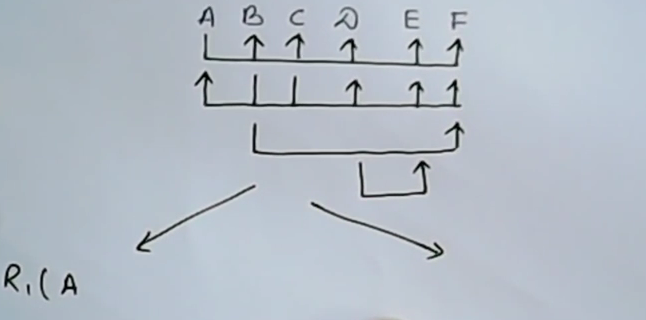 A B C D E F
R₁(A